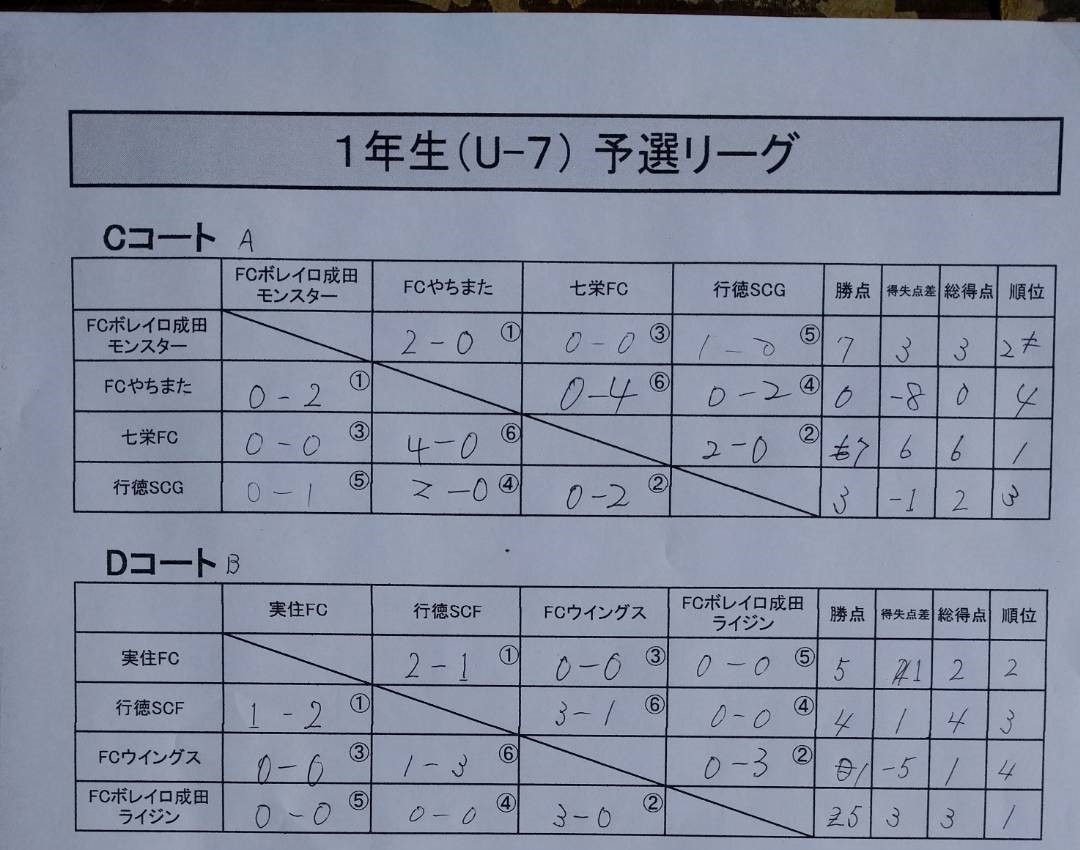 1年生(U-7) 予選リーグ
Cコート A
FCボレイロ成田 モンスター FCやちまた 七栄FC 行徳SCG 勝点 得失点差 総得点 順位
FCボレイロ成田 モンスター 2-0 ① 0-0 ③ 1-0 ⑤ 7 3 3 2
FCやちまた 0-2 ① 0-4 ⑥ 0-2 ④ 0 -8 0 4
七栄FC 0-0 ③ 4-0 ⑥ 2-0 ② 7 6 6 1
行徳SCG 0-1 ⑤ 2-0 ④ 0-2 ② 3 -1 2 3
Dコート B
実住FC 行徳SCF FCウイングス FCボレイロ成田 ライジン 勝点 得失点差 総得点 順位
実住FC 2-1 ① 0-0 ③ 0-0 ⑤ 5 1 2 2
行徳SCF 1-2 ① 3-1 ⑥ 0-0 ④ 4 1 4 3
FCウイングス 0-0 ③ 1-3 ⑥ 0-3 ② 1 -5 1 4
FCボレイロ成田 ライジン 0-0 ⑤ 0-0 ④ 3-0 ② 5 3 3 1